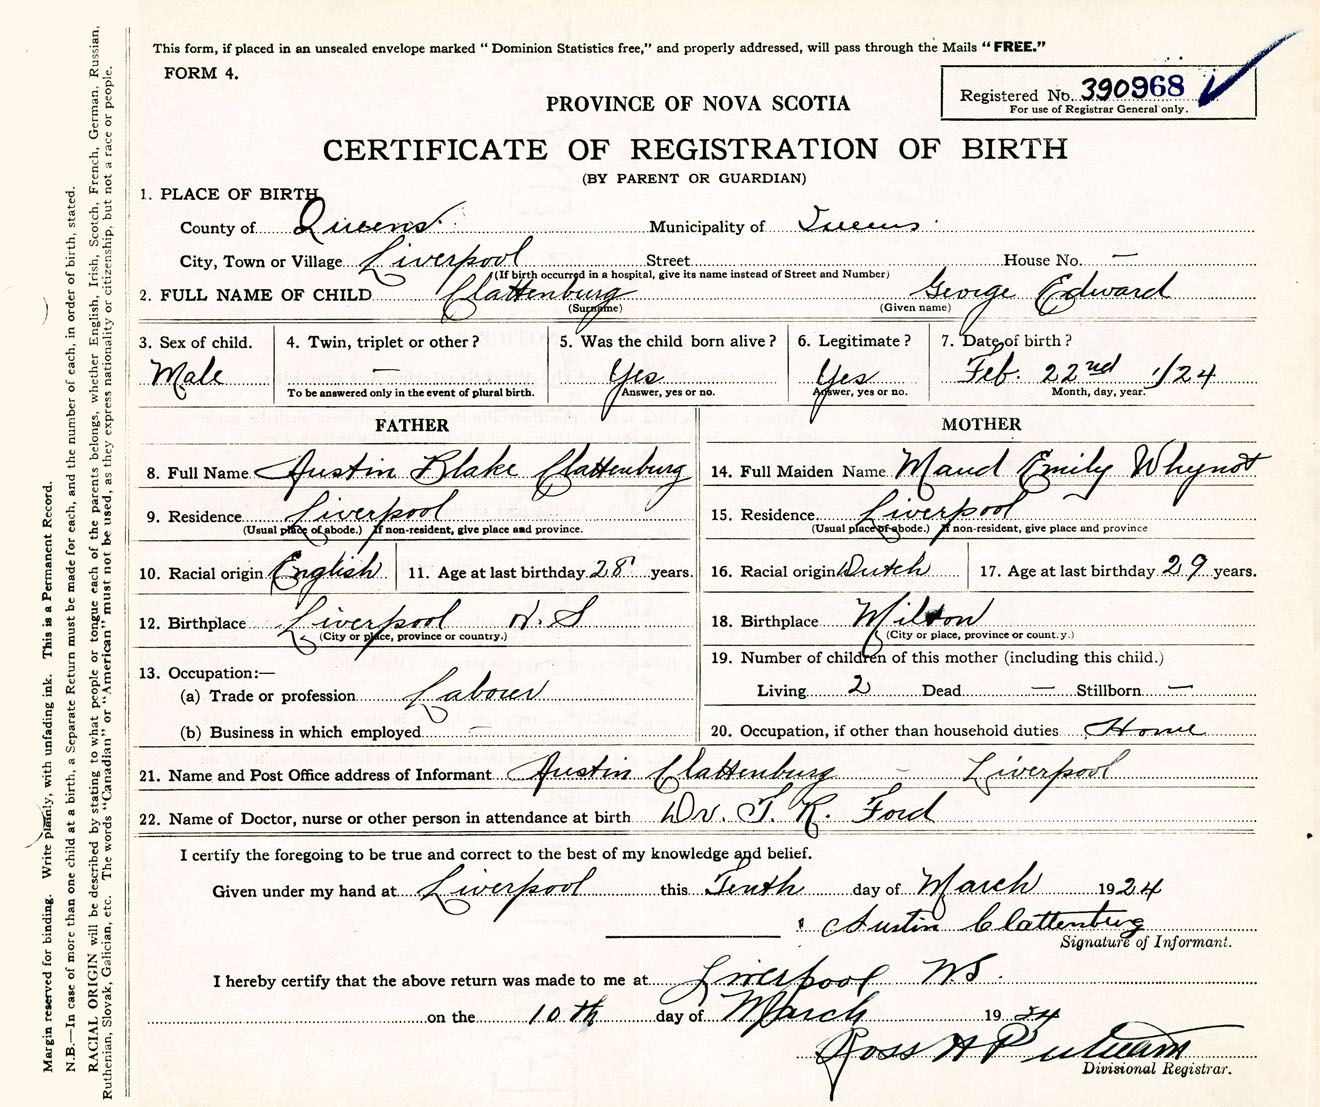 This form, if placed in an unsealed envelope marked “Dominion Statistics free,” and properly addressed, will pass through the Mails “FREE.”
FORM 4.
Registered No. 390968
For use of Registrar General only.
PROVINCE OF NOVA SCOTIA
CERTIFICATE OF REGISTRATION OF BIRTH
(BY PARENT OR GUARDIAN)
1. PLACE OF BIRTH
County of Queens Municipality of Queens
City, Town or Village Liverpool Street House No. —
(If birth occurred in a hospital, give its name instead of Street and Number)
2. FULL NAME OF CHILD Clattenburg George Edward
(Surname) (Given name)
3. Sex of child. 4. Twin, triplet or other? 5. Was the child born alive? 6. Legitimate? 7. Date of birth?
Male — Yes Yes Feb. 22nd 1/24
To be answered only in the event of plural birth. Answer, yes or no. Answer, yes or no. Month, day, year.
FATHER
8. Full Name Austin Blake Clattenburg
9. Residence Liverpool
(Usual place of abode.) If non-resident, give place and province.
10. Racial origin English 11. Age at last birthday 28 years.
12. Birthplace Liverpool N. S
(City or place, province or country.)
13. Occupation:—
(a) Trade or profession Labour
(b) Business in which employed —
MOTHER
14. Full Maiden Name Maud Emily Whynot
15. Residence Liverpool
(Usual place of abode.) If non-resident, give place and province
16. Racial origin Dutch 17. Age at last birthday 29 years.
18. Birthplace Milton
(City or place, province or country.)
19. Number of children of this mother (including this child.)
Living 2 Dead — Stillborn —
20. Occupation, if other than household duties Home
21. Name and Post Office address of Informant Austin Clattenburg – Liverpool
22. Name of Doctor, nurse or other person in attendance at birth Dr. J. R. Ford
I certify the foregoing to be true and correct to the best of my knowledge and belief.
Given under my hand at Liverpool this Tenth day of March 1924
Austin Clattenburg
Signature of Informant.
I hereby certify that the above return was made to me at Liverpool N.S.
on the 10th day of March 1924
Ross H
Divisional Registrar.
Margin reserved for binding. Write plainly, with unfading ink. This is a Permanent Record.
N.B.—In case of more than one child at a birth, a Separate Return must be made for each, and the number of each, in order of birth, stated.
RACIAL ORIGIN will be described by stating to what people or tongue each of the parents belongs, whether English, Irish, Scotch, French, German, Russian,
Ruthenian, Slovak, Galician, etc. The words “Canadian” or “American” must not be used, as they express nationality or citizenship, but not a race or people.